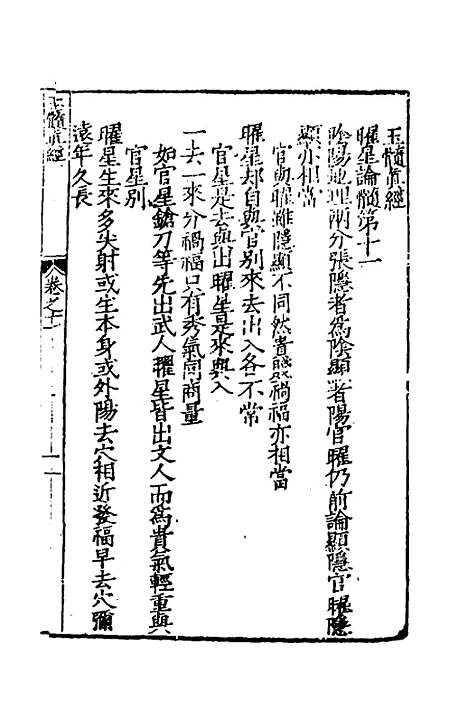 玉髓真經
曜星論髓第十一
陰陽地理兩分張隱者為陰顯者陽官曜仍前論顯隱官曜隱
顯亦相當
官與曜雖隱顯不同然貴賤禍福亦相當
曜星却自與官別來去出入各不常
官星是去與出曜星是來與入
一去一來分禍福只有秀氣同商量
如官星鎗刀等先出武人曜星皆出文人而為貴氣輕重與
官星別
曜星生來多尖射或生本身或外陽去穴相近發福早去穴彌
遠年久長
玉髓真經
卷之十一
一